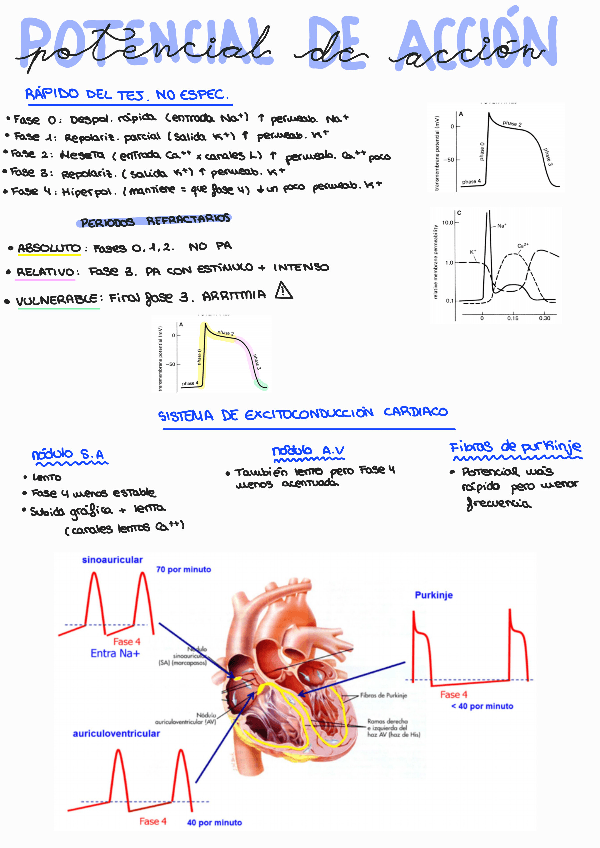 POTENCIAL DE ACCIÓN
potencial de acción
RÁPIDO DEL TEJ. NO ESPEC.
• Fase 0: Despol. rápida (entrada Na⁺) ↑ permeab. Na⁺
• Fase 1: Repolariz. parcial (salida K⁺) ↑ permeab. K⁺
• Fase 2: Meseta (entrada Ca⁺⁺ x canales L) ↑ permeab. Ca⁺⁺ poco
• Fase 3: Repolariz. (salida K⁺) ↑ permeab. K⁺
• Fase 4: Hiperpol. (mantiene = que fase 4) ↓ un poco permeab. K⁺
A
transmembrane potential (mV)
0
-50
phase 0
phase 2
phase 3
phase 4
PERIODOS REFRACTARIOS
• ABSOLUTO: Fases 0, 1, 2. NO PA
• RELATIVO: Fase 3. PA CON ESTÍMULO + INTENSO
• VULNERABLE: Final fase 3. ARRITMIA ⚠
C
relative membrane permeability
10.0
1.0
0.1
Na⁺
K⁺
Ca²⁺
0 0.15 0.30
A
transmembrane potential (mV)
0
-50
phase 0
phase 2
phase 3
phase 4
SISTEMA DE EXCITOCONDUCCIÓN CARDIACO
nódulo S.A
• Lento
• Fase 4 menos estable
• Subida gráfica + lenta
(canales lentos Ca⁺⁺)
nódulo A.V
• También lento pero Fase 4
menos acentuada
Fibras de purkinje
• Potencial más
rápido pero menor
frecuencia
sinoauricular
70 por minuto
Fase 4
Entra Na+
Nódulo
sinoauricular
(SA) (marcapasos)
Purkinje
Fase 4
< 40 por minuto
Fibras de Purkinje
Nódulo
auriculoventricular (AV)
Ramas derecha
e izquierda del
haz AV (haz de His)
auriculoventricular
Fase 4
40 por minuto